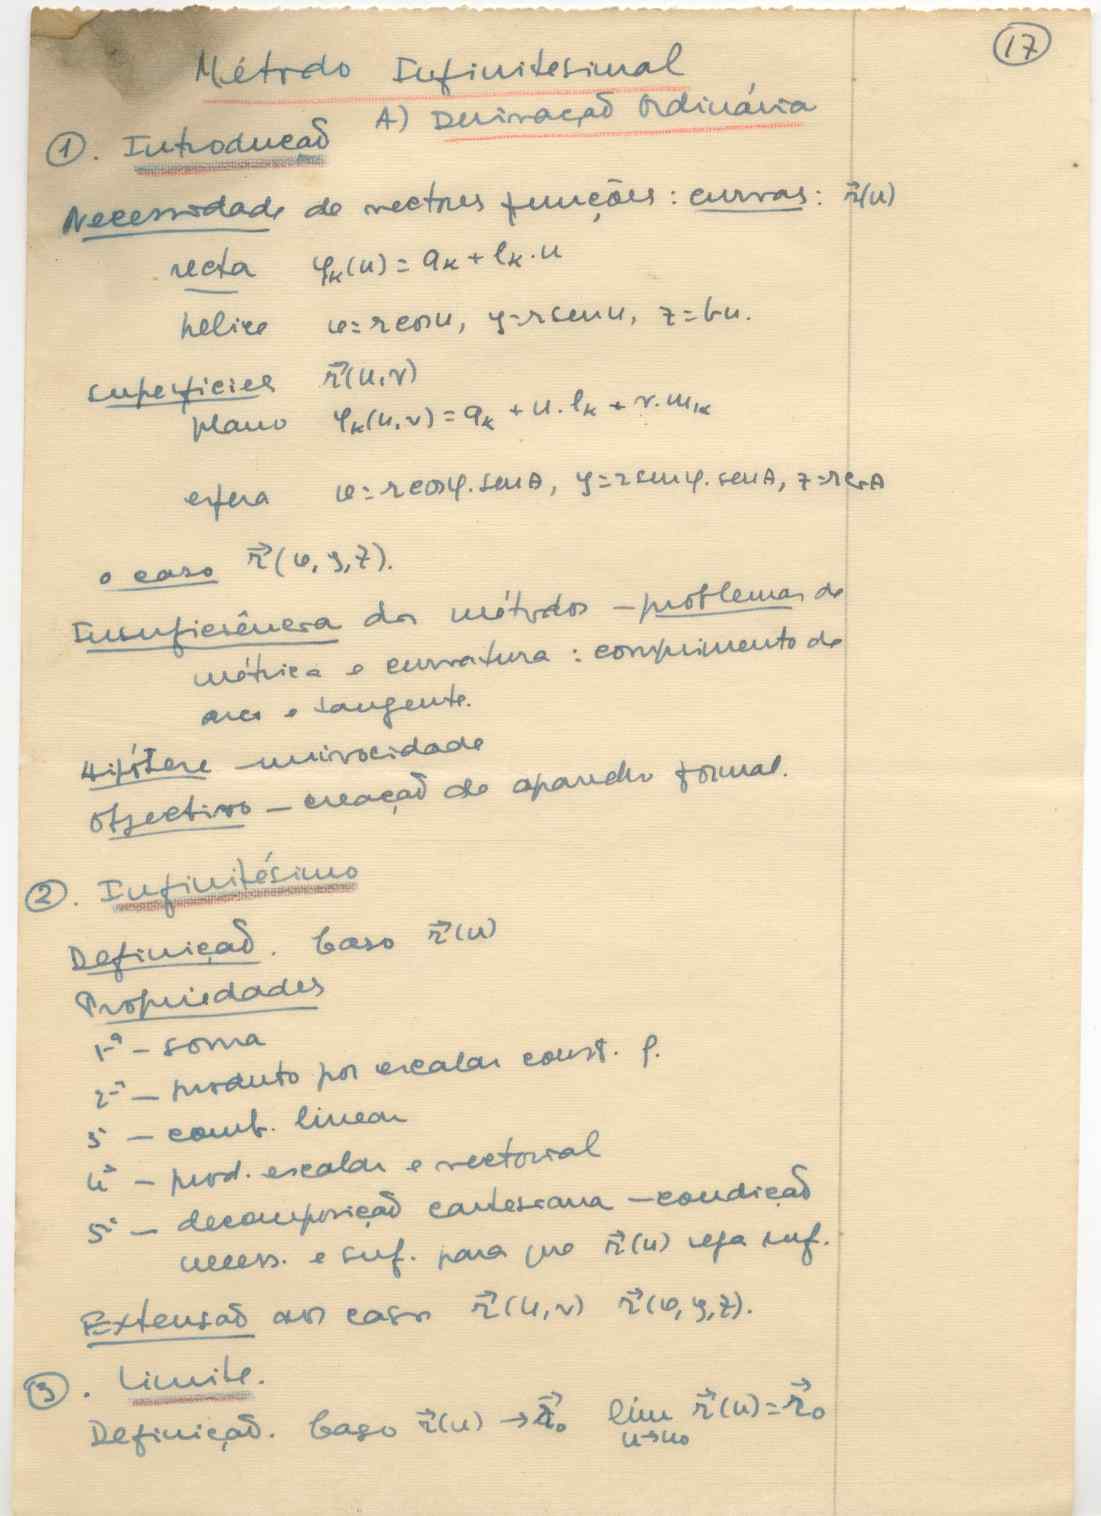 17
Método Infinitesimal
A) Derivação Ordinária
1. Introdução
Necessidade de vectores funções : curvas : r⃗(u)
recta φₖ(u) = aₖ + lₖ.u
hélice x = r cos u, y = r sen u, z = bu.
superfícies r⃗(u,v)
plano φₖ(u,v) = aₖ + u.lₖ + v.mₖ
esfera x = r cos φ. sen θ, y = r sen φ. sen θ, z = r cos θ
o caso r⃗(x, y, z).
Insuficiência dos métodos – problemas de
métrica e curvatura : comprimento de
arco e tangente.
Hipótese – univocidade
Objectivo – creação de aparelho formal.
2. Infinitésimo
Definição. Caso r⃗(u)
Propriedades
1ª – soma
2ª – produto por escalar const. ρ.
3ª – comb. linear
4ª – prod. escalar e vectorial
5ª – decomposição cartesiana – condição
necess. e suf. para que r⃗(u) seja inf.
Extensão aos casos r⃗(u,v) r⃗(x,y,z).
3. Limite.
Definição. Caso r⃗(u) → r⃗₀ lim r⃗(u) = r⃗₀
u→u₀